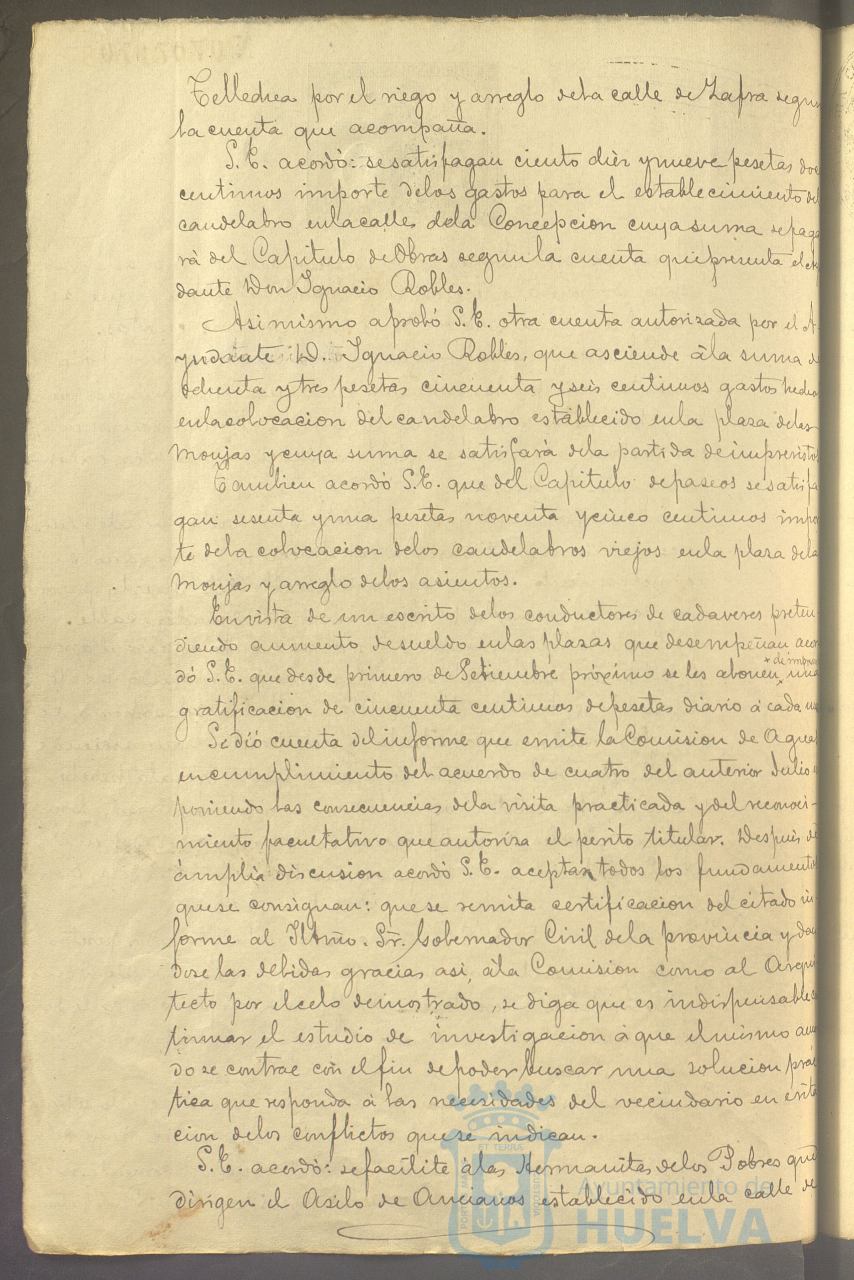 Telledrea por el riego y arreglo de la calle de Zafra segun
la cuenta que acompaña.
S. E. acordó: se satisfagan ciento diez y nueve pesetas doce
centimos importe de los gastos para el establecimiento del
candelabro en la calle de la Concepcion cuya suma se paga
rá del Capitulo de Obras segun la cuenta que presenta el Ay
dante Don Ignacio Robles.
Asimismo aprobó S. E. otra cuenta autorizada por el A-
yudante D. Ignacio Robles, que asciende á la suma de
ochenta y tres pesetas cincuenta y seis centimos gastos hechos
en la colocacion del candelabro establecido en la plaza de las
Monjas y cuya suma se satisfará de la partida de imprevistos
Tambien acordó S. E. que del Capitulo de paseos se satisfa
gan sesenta y una pesetas noventa y cinco centimos impor
te de la colocacion de los candelabros viejos en la plaza de la
Monjas y arreglo de los asientos.
En vista de un escrito de los conductores de cadaveres preten
diendo aumento de sueldo en las plazas que desempeñan acor
dó S. E. que desde primero de Setiembre próximo se les abonen una
gratificacion de cincuenta centimos de pesetas diario á cada uno
Se dió cuenta del informe que emite la Comision de Aguas
en cumplimiento del acuerdo de cuatro del anterior Julio
poniendo las consecuencias de la visita practicada y del reconoci-
miento facultativo que autoriza el perito titular. Despues de
ámplia discusion acordó S. E. aceptar todos los fundamentos
que se consignan: que se remita certificacion del citado in
forme al Iltmo. Sr. Gobernador Civil de la provincia y dan
dose las debidas gracias asi, á la Comision como al Arqui
tecto por el celo demostrado, se diga que es indispensable
tinuar el estudio de investigacion á que el mismo acuer
do se contrae con el fin de poder buscar una solucion prac
tica que responda á las necesidades del vecindario en evita
cion de los conflictos que se indican.
S. E. acordó: se facilite á las Hermanitas de los Pobres que
dirigen el Asilo de Ancianos establecido en la calle de
Ayuntamiento de
HUELVA